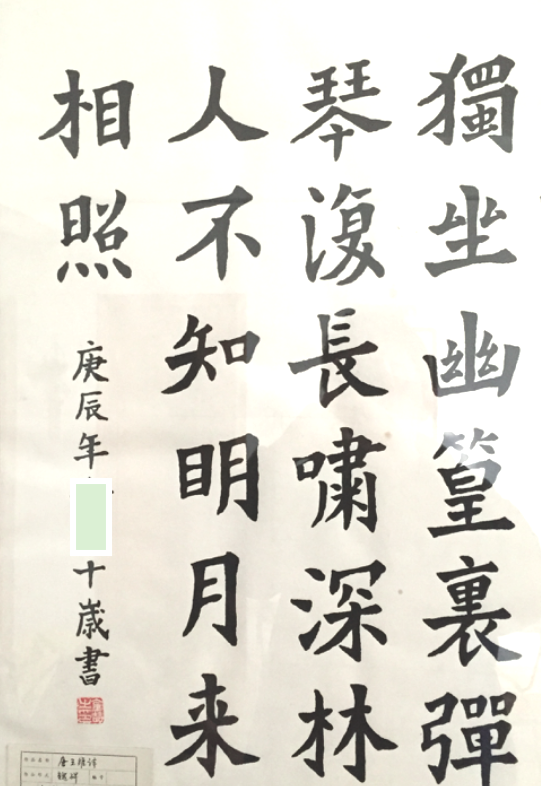 獨坐幽篁裏彈
琴復長嘯深林
人不知明月来
相照
庚辰年
十歲書
唐王維诗